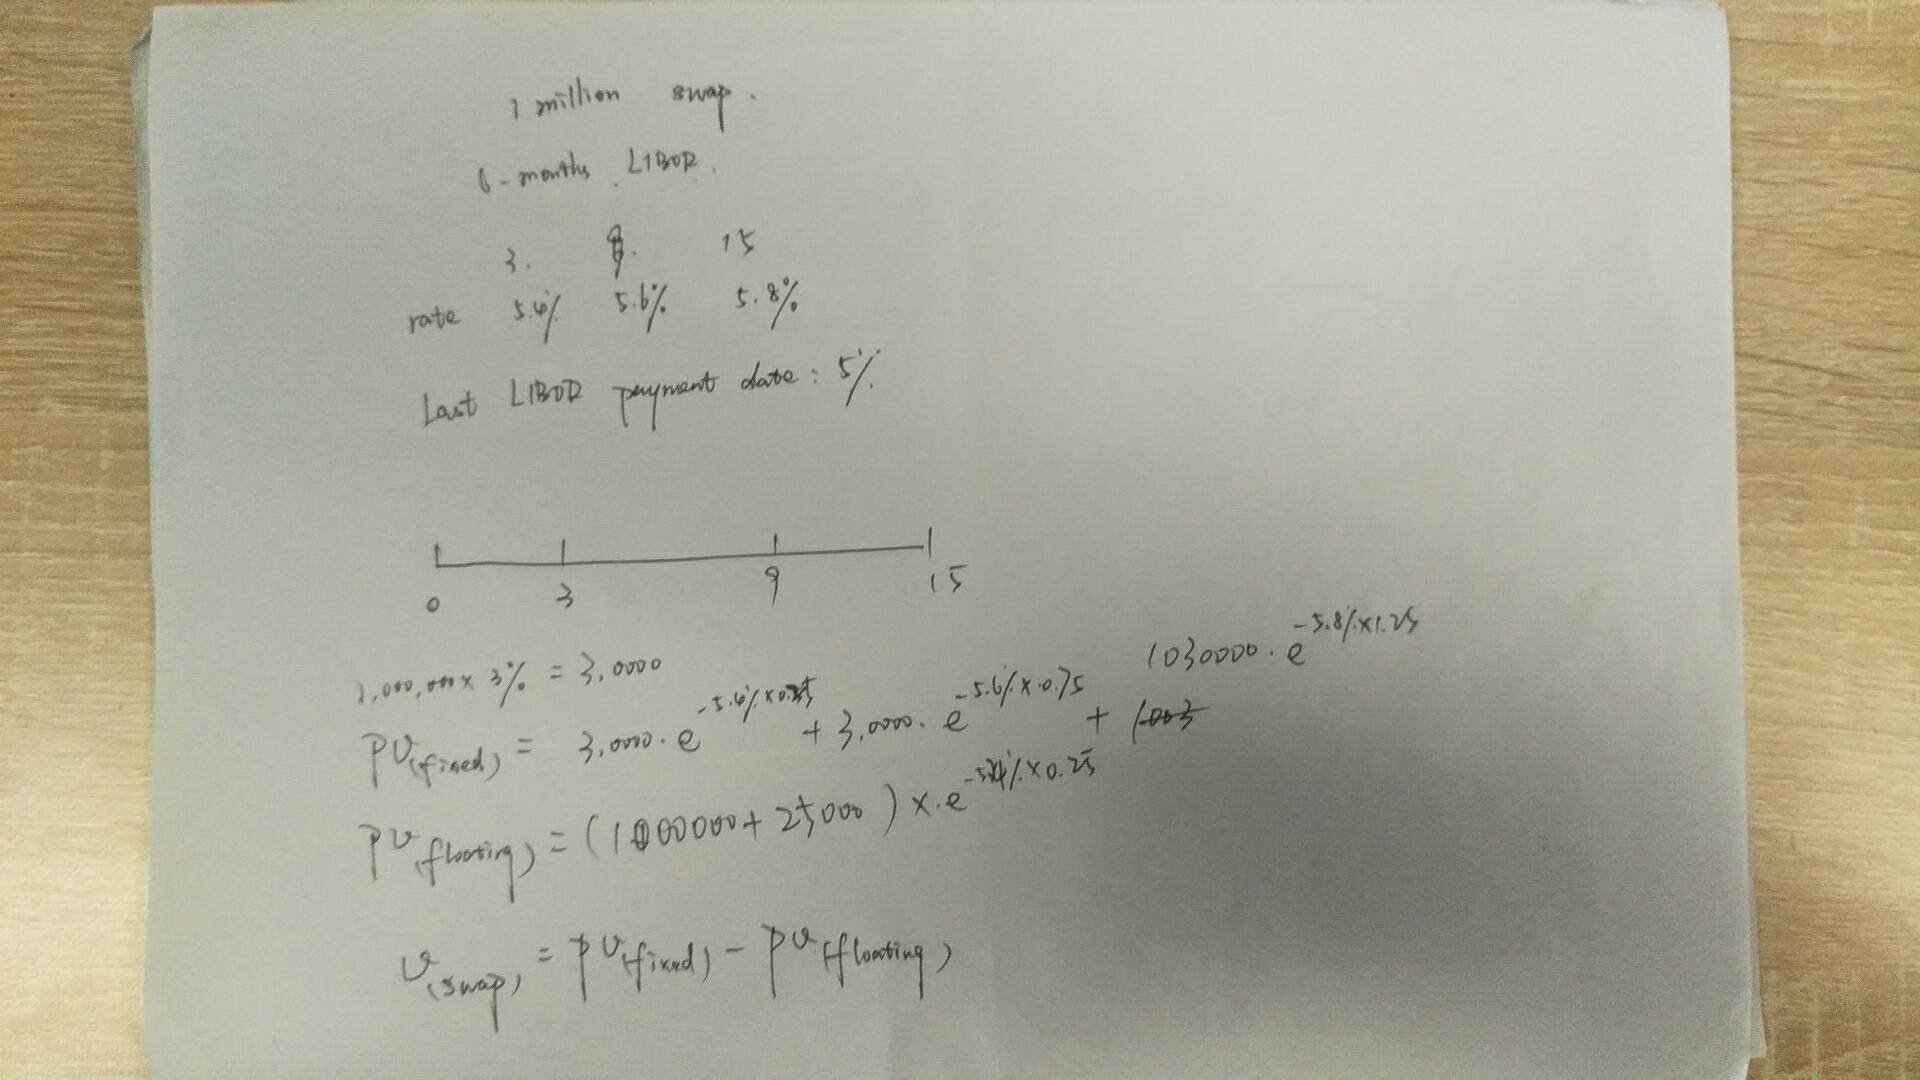 1 million swap.
6-months LIBOR.
3. 9. 15
rate 5.4% 5.6% 5.8%
Last LIBOR payment date: 5%
0 3 9 15
1,000,000 x 3% = 3,0000
PV(fixed) = 3,0000 · e^-5.4%x0.25 + 3,0000 · e^-5.6%x0.75 + 1003 1030000 · e^-5.8%x1.25
PV(floating) = (1000000 + 25000) x · e^-5.4%x0.25
V(swap) = PV(fixed) - PV(floating)